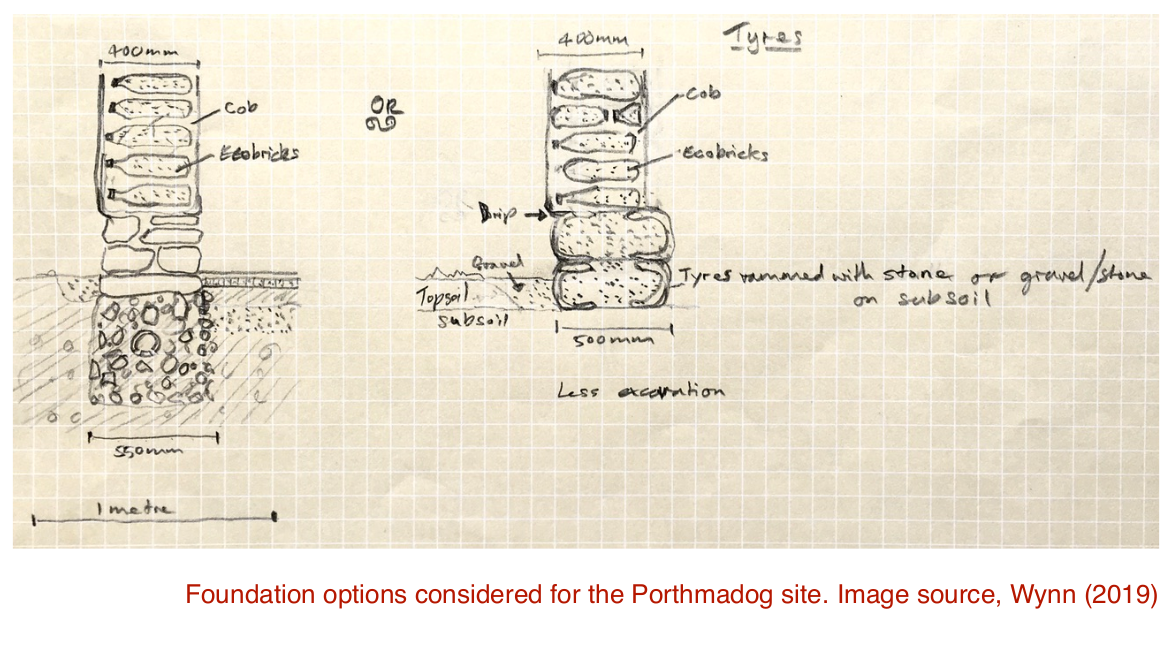 400mm
Cob
Ecobricks
550mm
1 metre
OR
Tyres
400mm
Cob
Ecobricks
Drip
Gravel
Topsoil
subsoil
Tyres rammed with stone or gravel/stone
on subsoil
500mm
Less excavation
Foundation options considered for the Porthmadog site. Image source, Wynn (2019)